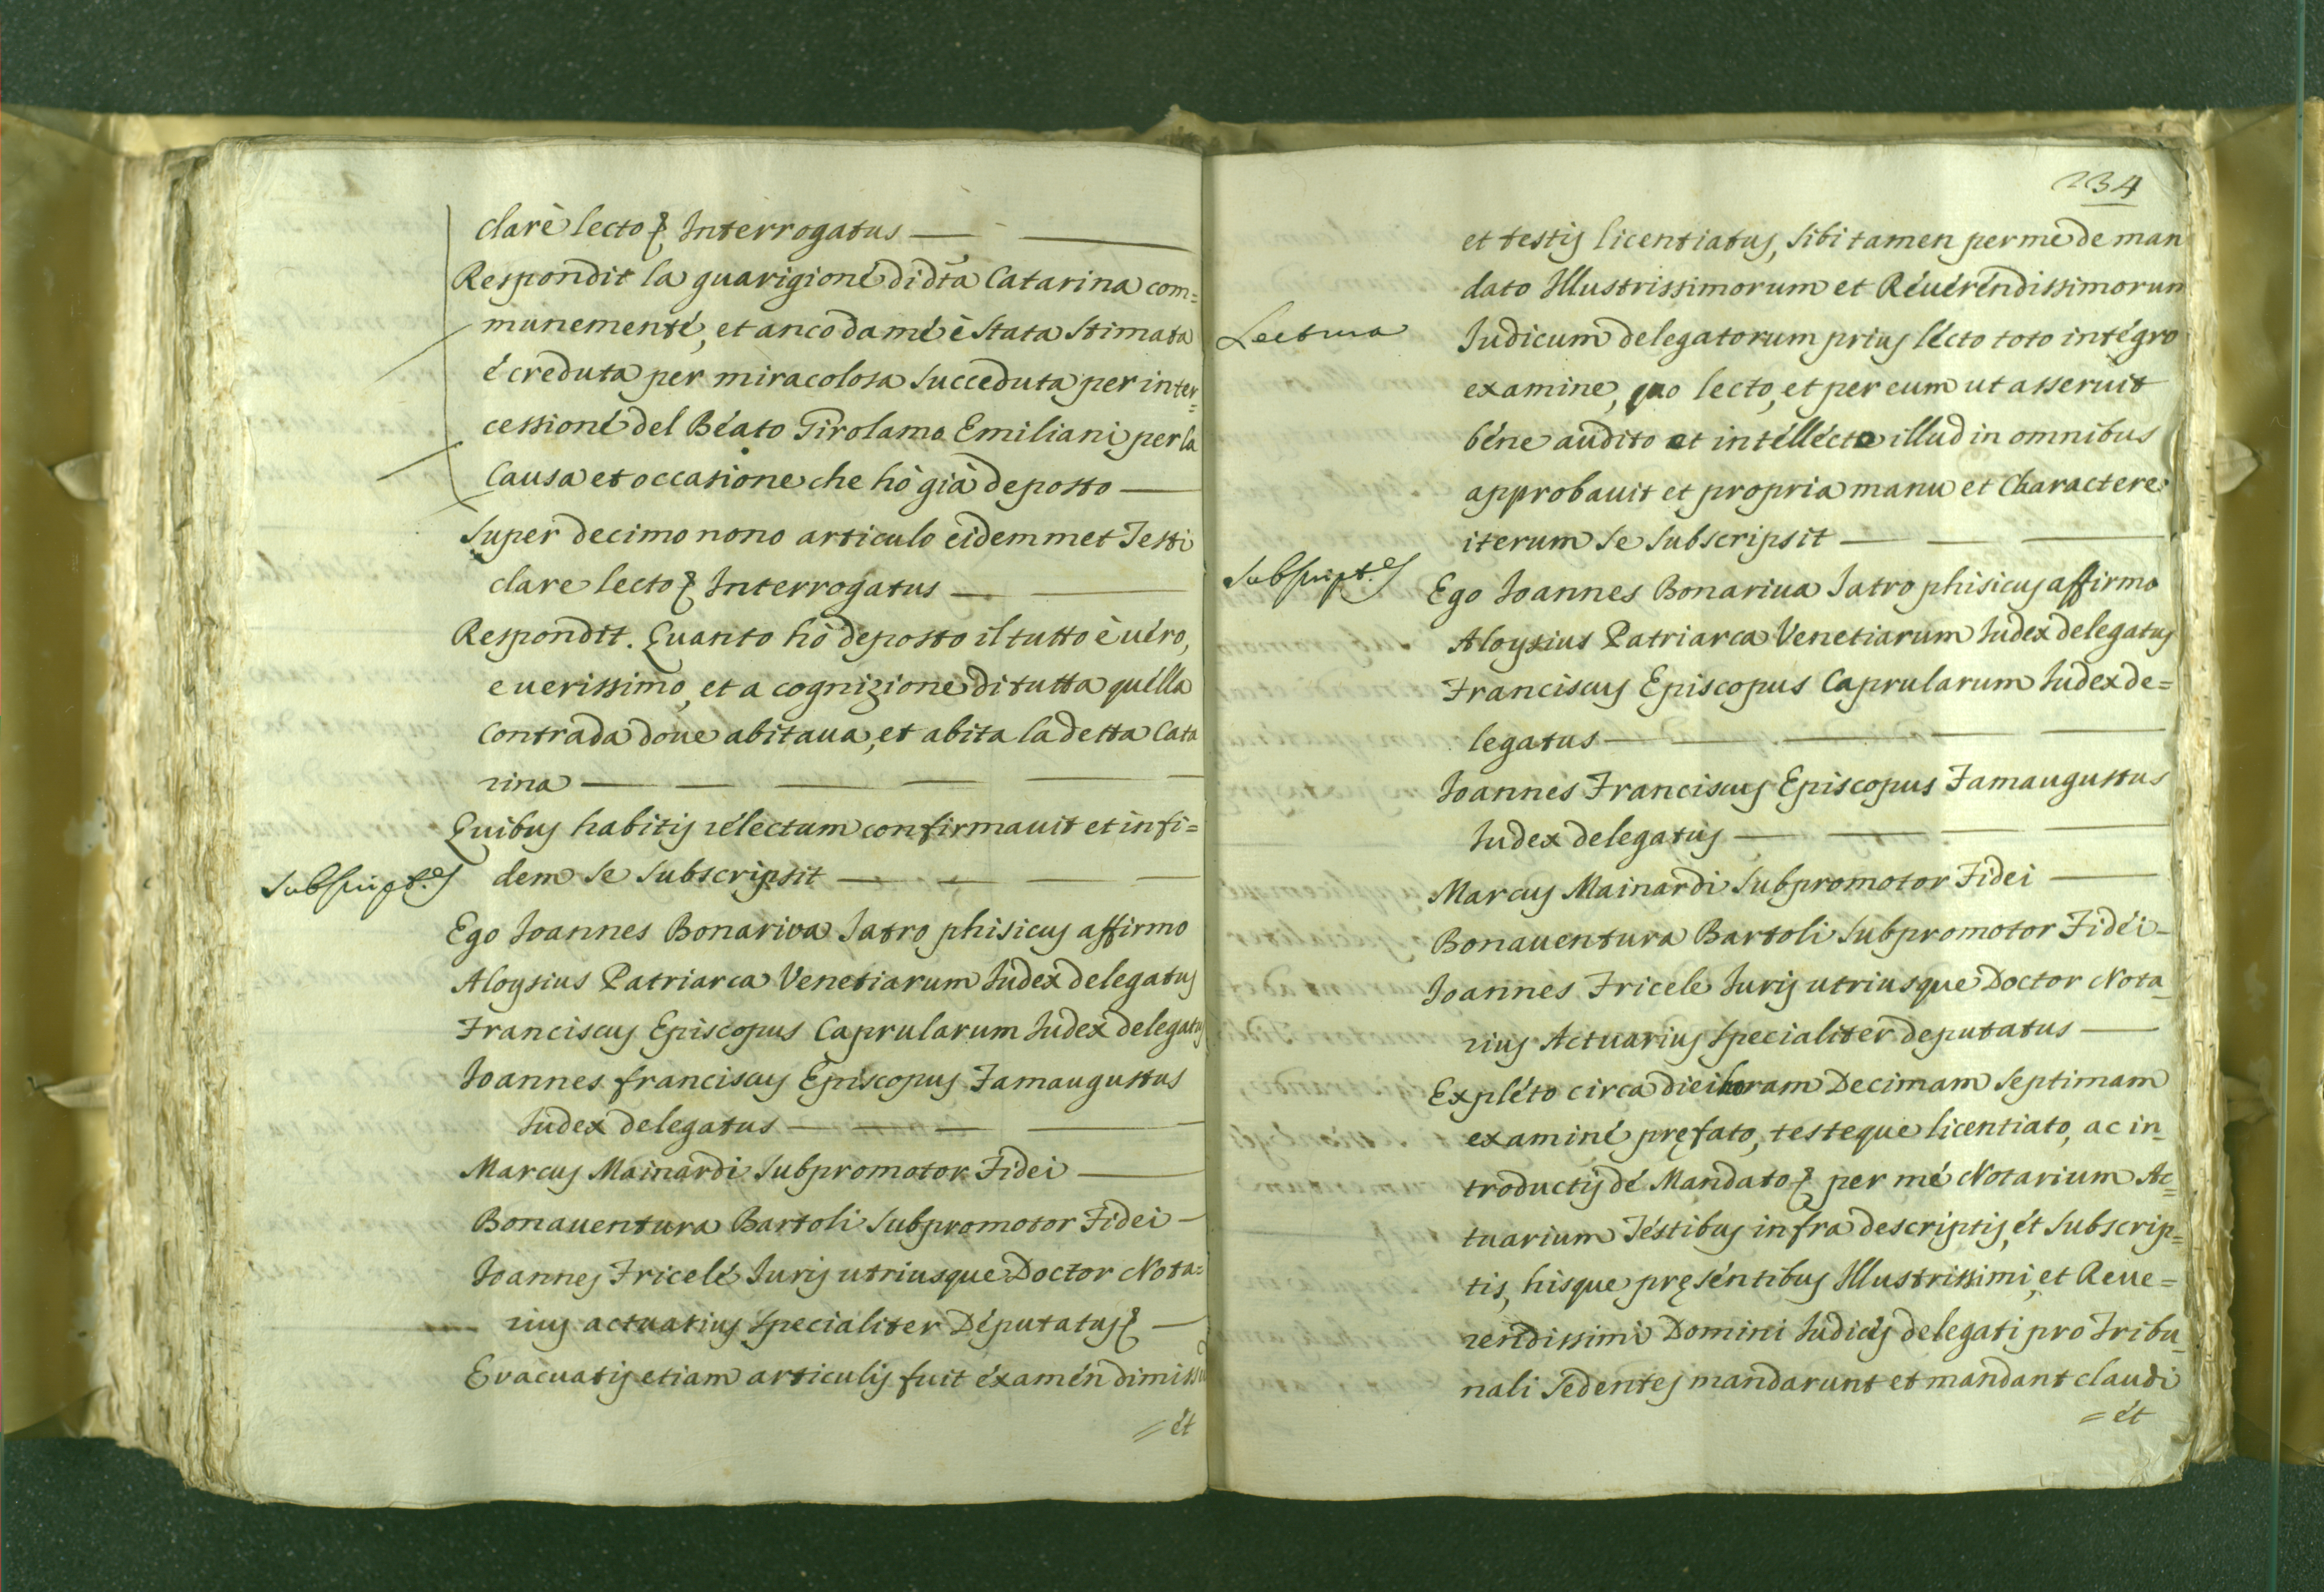 clarè lecto & Interrogatus
Respondit la guarigioné di dta Catarina com=
munementé, et anco da mé è stata stimata
é creduta per miracolosa succeduta per inter=
cessioné del Béato Girolamo Emiliani per la
Causa et occasione che hò già deposto
Super decimo nono articulo eidemmet Testi
clare lecto & Interrogatus
Respondit. Quanto hò deposto il tutto è uéro,
e uerissimo, et a cognizione di tutta quélla
Contrada doue abitaua, et abita la detta Cata
rina
Quibus habitis réléctum confirmauit et in fi=
Subscript.es
dem se subscripsit
Ego Joannes Bonariva Jatro phisicus affirmo
Aloysius Patriarca Venetiarum Iudex delegatus
Franciscus Episcopus Caprularum Iudex delegatus
Joannes franciscus Episcopus Famaugustus
Iudex delegatus
Marcus Mainardi Subpromotor Fidei
Bonauentura Bartoli Subpromotor Fidei
Joannes Fricelé Iuris utriusque Doctor Nota=
rius actuarius specialiter Députatus &
Evacuatis etiam articulis fuit éxamén dimissu
= ét
234
et testis licentiatus, sibi tamen per mé de man
dato Illustrissimorum et Réuéréndissimorum
Lectura
Iudicum delegatorum prius lécto toto intégro
examine, quo lecto, et per eum ut asseruit
béne audito et intéllécto illud in omnibus
approbauit et propria manu et Charactere
iterum se subscripsit
Subscript.es
Ego Joannes Bonariua Jatro phisicus affirmo
Aloysius Patriarca Venetiarum Iudex delegatus
Franciscus Episcopus Caprularum Iudex de=
legatus
Joannes Franciscus Episcopus Famaugustus
Iudex delegatus
Marcus Mainardi Subpromotor Fidei
Bonauentura Bartoli Subpromotor Fidéi
Joannés Fricele Iuris utriusque Doctor Nota_
rius Actuarius specialiter deputatus
Expléto circa diei horam Decimam septimam
examiné pręfato, testeque licentiato, ac in_
troductis dé Mandato & per mé Notarium Ac=
tuarium Téstibus infra descriptis, ét subscrip=
tis, hisque pręséntibus Illustrissimi, et Reue=
rendissimi Domini Iudices delegati pro Tribu_
nali Sedentes mandarunt et mandant claudi
= ét